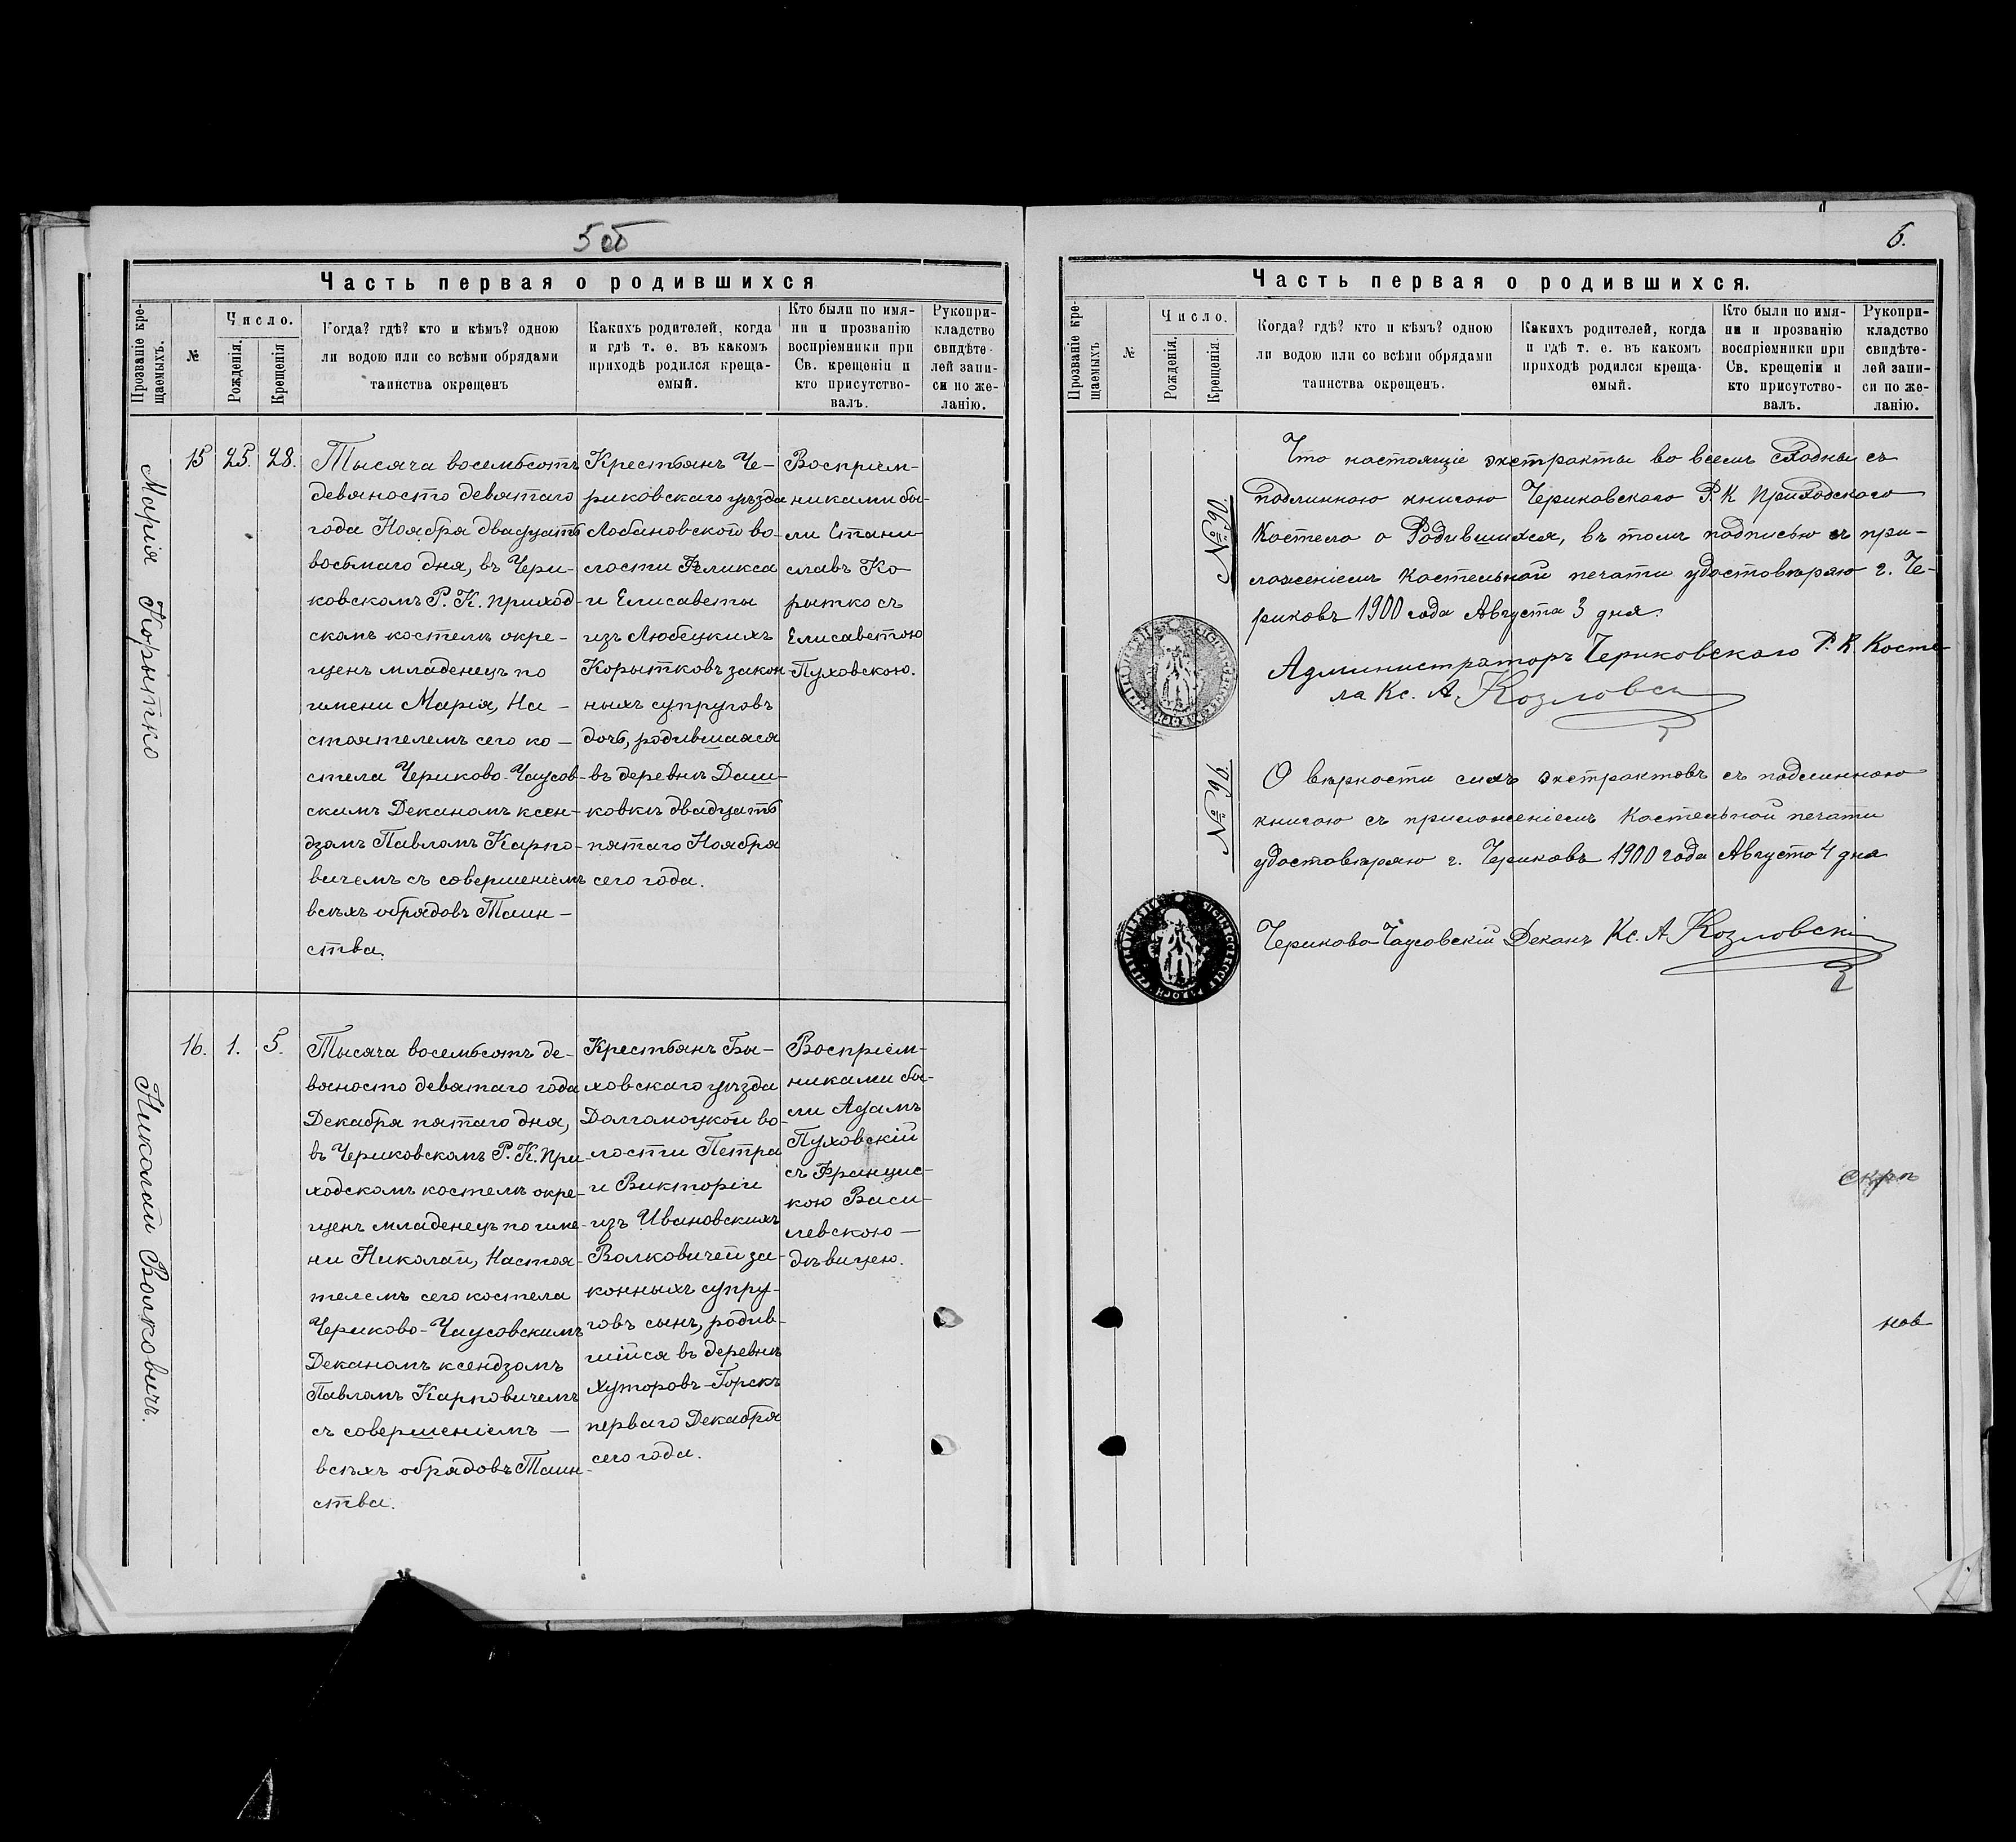 5 об
Часть первая о родившихся
Прозваніе кре-
щаемыхъ.
№
Число.
Рожденія.
Крещенія
Когда? гдѣ? кто и кѣмъ? одною
ли водою или со всѣми обрядами
таинства окрещенъ
Какихъ родителей, когда
и гдѣ т. е. въ какомъ
приходѣ родился креща-
емый.
Кто были по имя-
ни и прозванію
воспріемники при
Св. крещеніи и
кто присутство-
валъ.
Рукопри-
кладство
свидѣте-
лей запи-
си по же-
ланію.
Марія Корытко
15
25.
28.
Тысяча восемьсотъ
девяносто девятаго
года Ноября двадцать
восьмаго дня, въ Чери-
ковскомъ Р. К. приход-
скомъ костелѣ окре-
щенъ младенецъ по
имени Марія, На-
стоятелемъ сего ко-
стела Чериково-Чаусов-
скимъ Деканомъ ксен-
дзомъ Павломъ Карпо-
вичемъ съ совершеніемъ
всѣхъ обрядовъ Таин-
ства.
Крестьянъ Че-
риковскаго уѣзда
Лобановской во-
лости Феликса
и Елисаветы
изъ Любецкихъ
Корытковъ закон
ныхъ супруговъ
дочь, родившаяся
въ деревнѣ Даш-
ковкѣ двадцать
пятаго Ноября
сего года.
Воспріем-
никами бы-
ли Стани-
славъ Ко-
рытко съ
Елисаветою
Пуховскою.
Николай Волковичъ.
16.
1.
5.
Тысяча восемьсотъ де-
вяносто девятаго года
Декабря пятаго дня,
въ Чериковскомъ Р. К. При-
ходскомъ костелѣ окре-
щенъ младенецъ по име-
ни Николай, Настоя-
телемъ сего костела
Чериково-Чаусовскимъ
Деканомъ ксендзомъ
Павломъ Карповичемъ
съ совершеніемъ —
всѣхъ обрядовъ Таин-
ства.
Крестьянъ Бы-
ховскаго уѣзда
Долгомоцкой во-
лости Петра
и Викторіи
изъ Ивановскихъ
Волковичей за-
конныхъ супру-
говъ сынъ, родив-
шійся въ деревнѣ
Хуторовъ-Горскъ
перваго Декабря
сего года.
Воспріем-
никами бы-
ли Адамъ
Пуховскій
съ Францис-
кою Васи-
левскою —
дѣвицею.
6.
Часть первая о родившихся.
Прозваніе кре-
щаемыхъ
№
Число.
Рожденія.
Крещенія.
Когда? гдѣ? кто и кѣмъ? одною
ли водою или со всѣми обрядами
таинства окрещенъ.
Какихъ родителей, когда
и гдѣ т. е. въ какомъ
приходѣ родился креща-
емый.
Кто были по имя-
ни и прозванію
воспріемники при
Св. крещеніи и
кто присутство-
валъ.
Рукопри-
кладство
свидѣте-
лей запи-
си по же-
ланію.
№ 90.
Что настоящіе экстракты во всемъ сходны съ
подлинною книгою Чериковского Р. К приходского
Костела о Родившихся, въ томъ подписью съ при-
ложеніемъ Костельной печати удостовѣряю г. Че-
риковъ 1900 года Августа 3 дня.
Администраторъ Чериковскаго Р. К. Косте-
ла Кс. А. Козловск
№ 96.
О вѣрности сихъ экстрактовъ съ подлинною
книгою съ приложеніемъ Костельной печати
удостовѣряю г. Чериковъ 1900 года Августа 4 дня
Чериково Чаусовскій Деканъ Кс. А Козловскі
скрп
нов